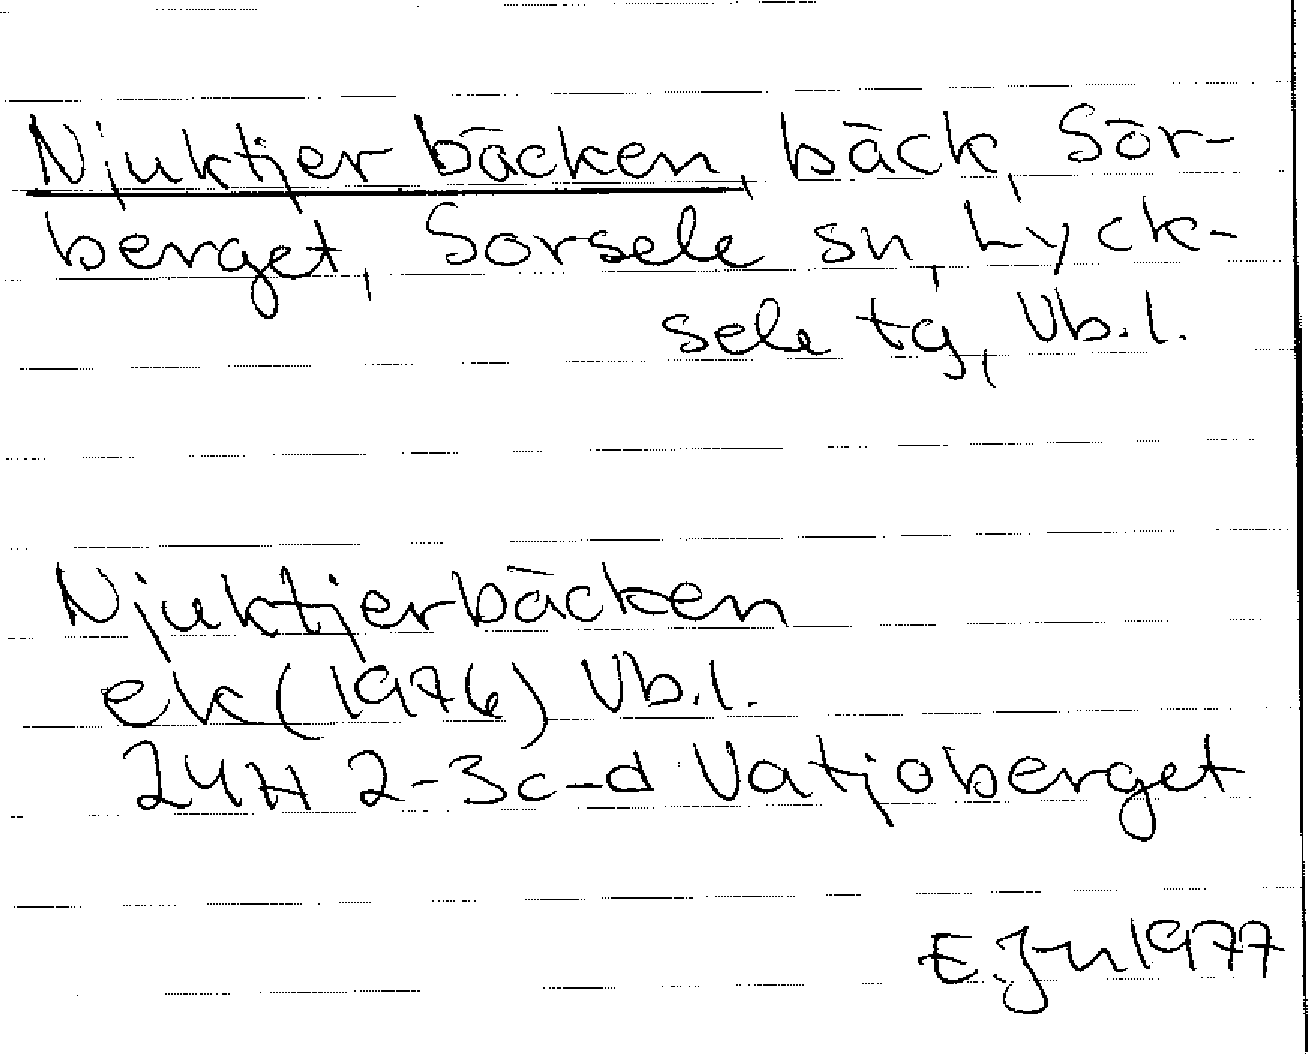 Njuktjerbäcken, bäck, Sör-
berget, Sorsele sn, Lyck-
sele tg, Vb.l.
Njuktjerbäcken
ek (1976) Vb.l.
24H 2-3c-d Vatjoberget
E. Jn 1977